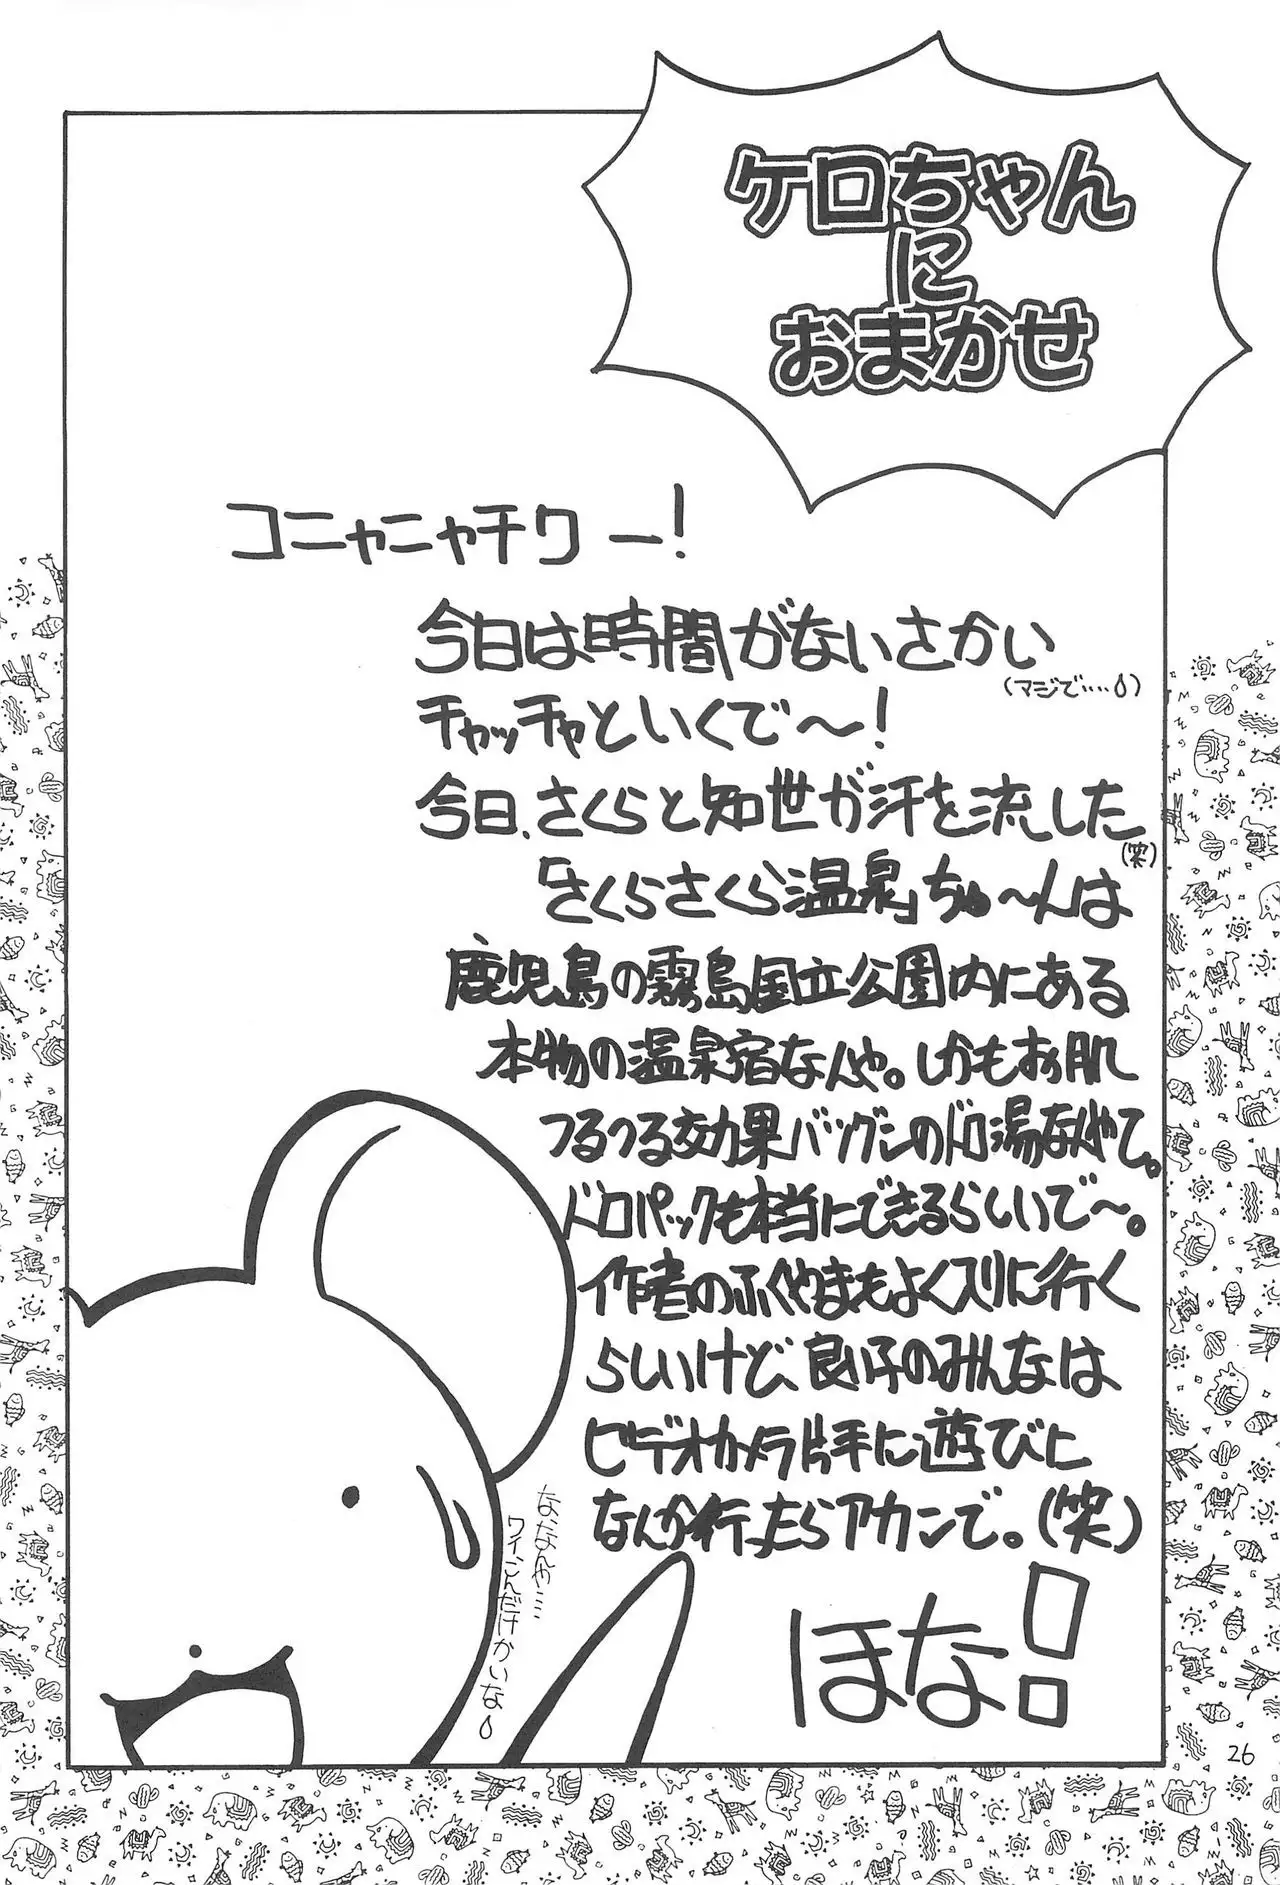 ケロちゃん
に
おまかせ
コニャニャチワー！
今日は時間がないさかい
（マジで････）
チャッチャといくで～！
今日、さくらと知世が汗を流した
（笑）
「さくらさくら温泉」ちゅ～んは
鹿児島の霧島国立公園内にある
本物の温泉宿なんや。しかもお肌
つるつる効果バツグンのドロ湯なんやて。
ドロパックも本当にできるらしいで～。
作者のふくやまもよくスリに行く
らしいけど、良い子のみんなは
ビデオカメラ片手に遊びに
なんか行ったらアカンで。（笑）
ほな！
なんや････
ワイ、こんだけかいな
26